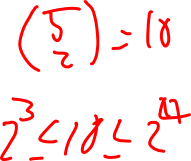 (5
2) = 10
2^3 ≤ 10 ≤ 2^4